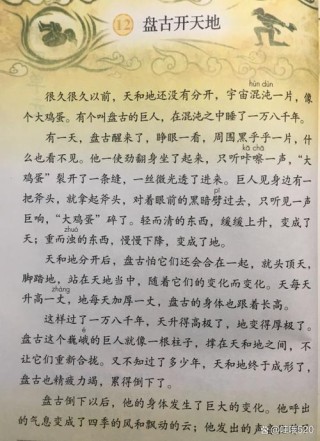 12 盘古开天地
hùn dùn
很久很久以前，天和地还没有分开，宇宙混沌一片，像
个大鸡蛋。有个叫盘古的巨人，在混沌之中睡了一万八千年。
有一天，盘古醒来了，睁眼一看，周围黑乎乎一片，什
kā chā
么也看不见。他一使劲翻身坐了起来，只听咔嚓一声，“大
鸡蛋”裂开了一条缝，一丝微光透了进来。巨人见身边有一
pī
把斧头，就拿起斧头，对着眼前的黑暗劈过去，只听见一声
巨响，“大鸡蛋”碎了。轻而清的东西，缓缓上升，变成了
zhuó
天；重而浊的东西，慢慢下降，变成了地。
天和地分开后，盘古怕它们还会合在一起，就头顶天，
脚踏地，站在天地当中，随着它们的变化而变化。天每天
zhàng
升高一丈，地每天加厚一丈，盘古的身体也跟着长高。
这样过了一万八千年，天升得高极了，地变得厚极了。
é
盘古这个巍峨的巨人就像一根柱子，撑在天和地之间，不
让它们重新合拢。又不知过了多少年，天和地终于成形了，
盘古也精疲力竭，累得倒下了。
盘古倒下以后，他的身体发生了巨大的变化。他呼出
的气息变成了四季的风和飘动的云；他发出的声